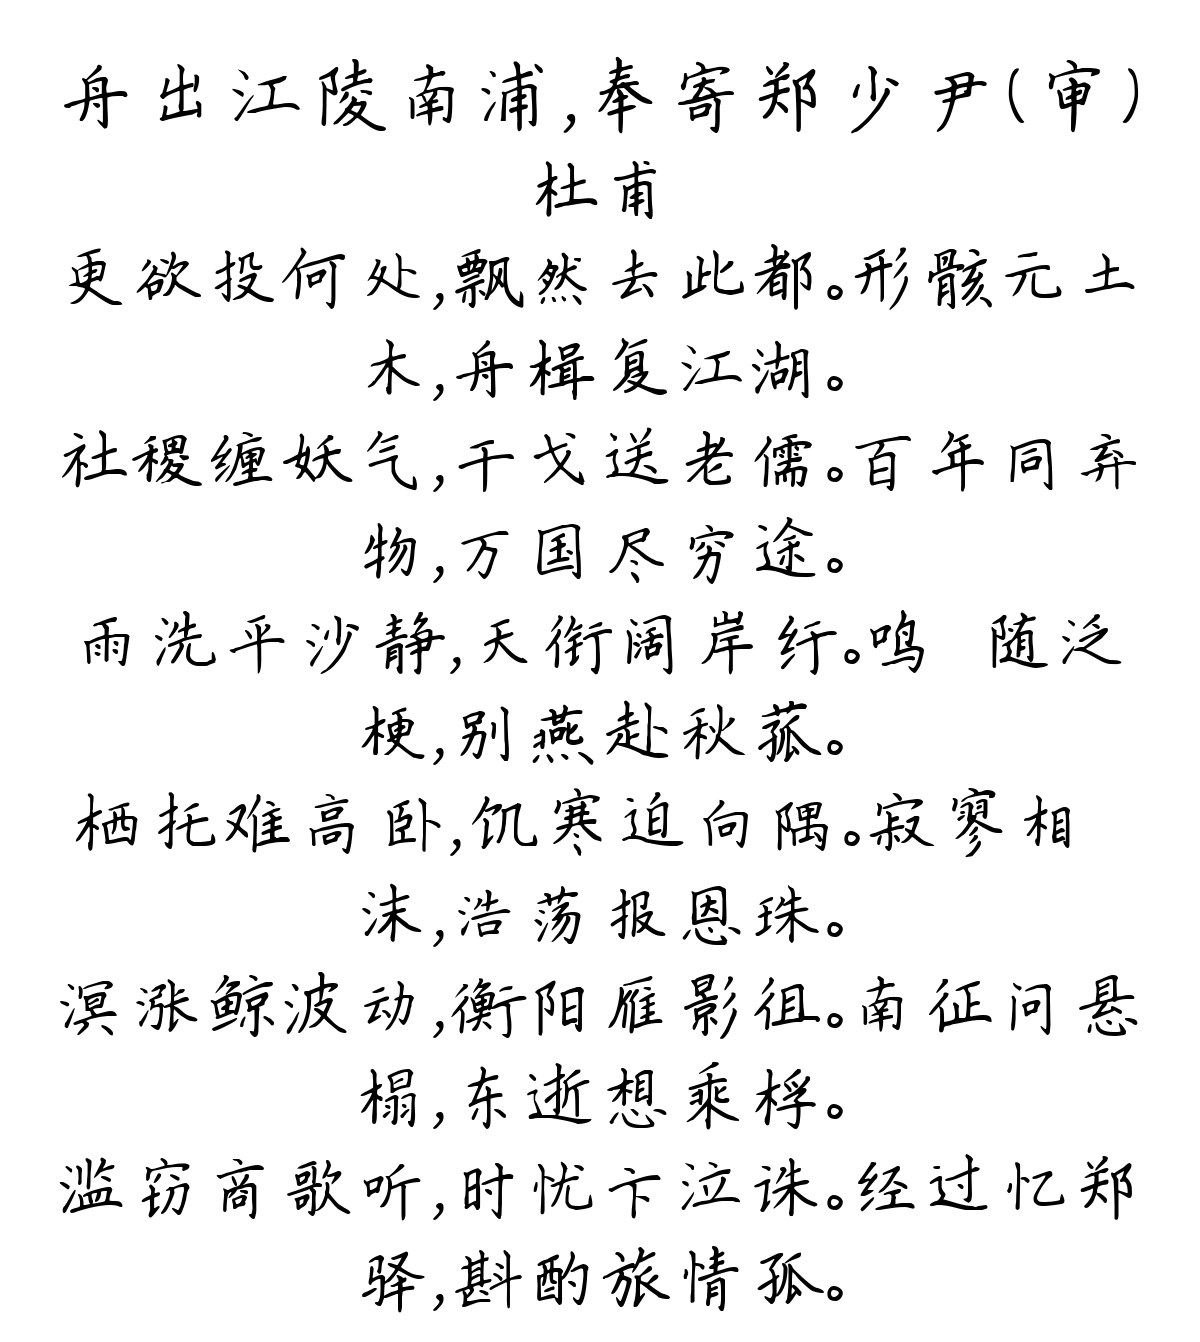 舟出江陵南浦,奉寄郑少尹(审)
杜甫
更欲投何处,飘然去此都。形骸元土
木,舟楫复江湖。
社稷缠妖气,干戈送老儒。百年同弃
物,万国尽穷途。
雨洗平沙静,天衔阔岸纡。鸣 随泛
梗,别燕赴秋菰。
栖托难高卧,饥寒迫向隅。寂寥相
沫,浩荡报恩珠。
溟涨鲸波动,衡阳雁影徂。南征问悬
榻,东逝想乘桴。
滥窃商歌听,时忧卞泣诛。经过忆郑
驿,斟酌旅情孤。